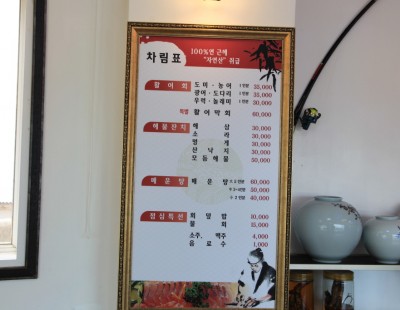 차림표
100%연 근해
"자연산" 취급
활 어 회 도 미 · 농 어 1인분 35,000
광 어 · 도 다 리 1인분 35,000
우 럭 · 놀 래 미 1인분 30,000
특별 활 어 막 회 80,000
해물잔치 해 삼 30,000
소 라 30,000
멍 게 30,000
산 낙 지 30,000
모 듬 해 물 50,000
매 운 탕 매 운 탕 60,000
50,000
40,000
점심특선 회 덮 밥 10,000
물 회 15,000
소주, 맥주 4,000
음 료 수 1,000